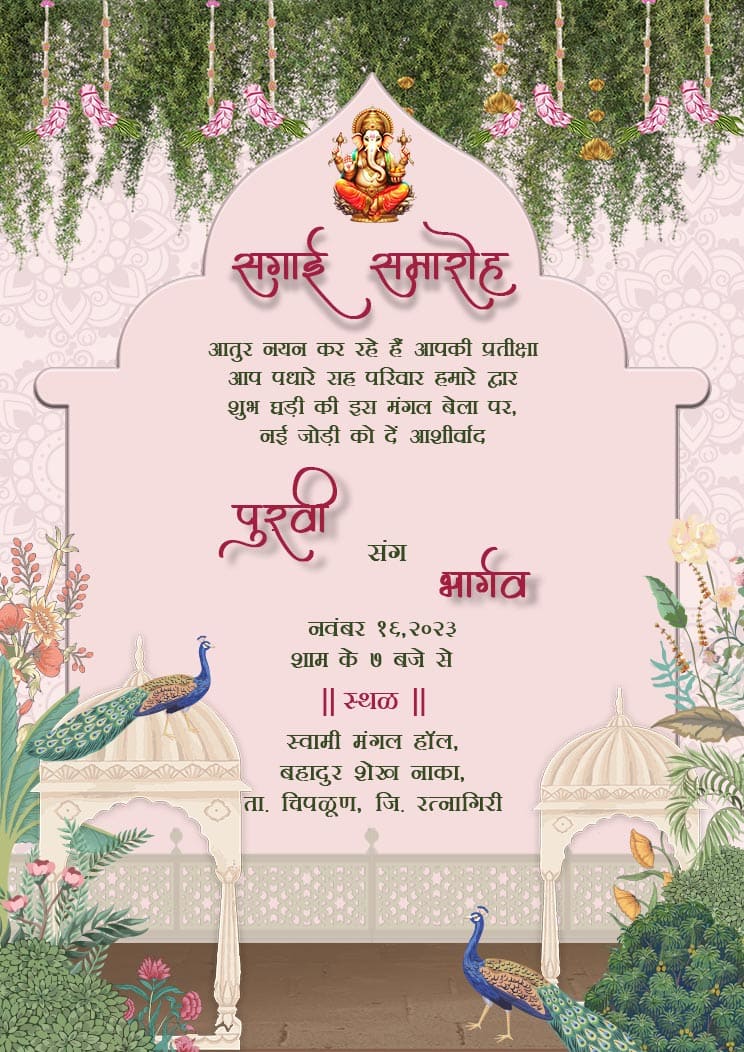 सगाई समारोह
आतुर नयन कर रहे हैं आपकी प्रतीक्षा
आप पधारे सह परिवार हमारे द्वार
शुभ घड़ी की इस मंगल बेला पर,
नई जोड़ी को दें आशीर्वाद
पुरवी
संग
भार्गव
नवंबर १६,२०२३
शाम के ७ बजे से
|| स्थळ ||
स्वामी मंगल हॉल,
बहादुर शेख नाका,
ता. चिपळूण, जि. रत्नागिरी